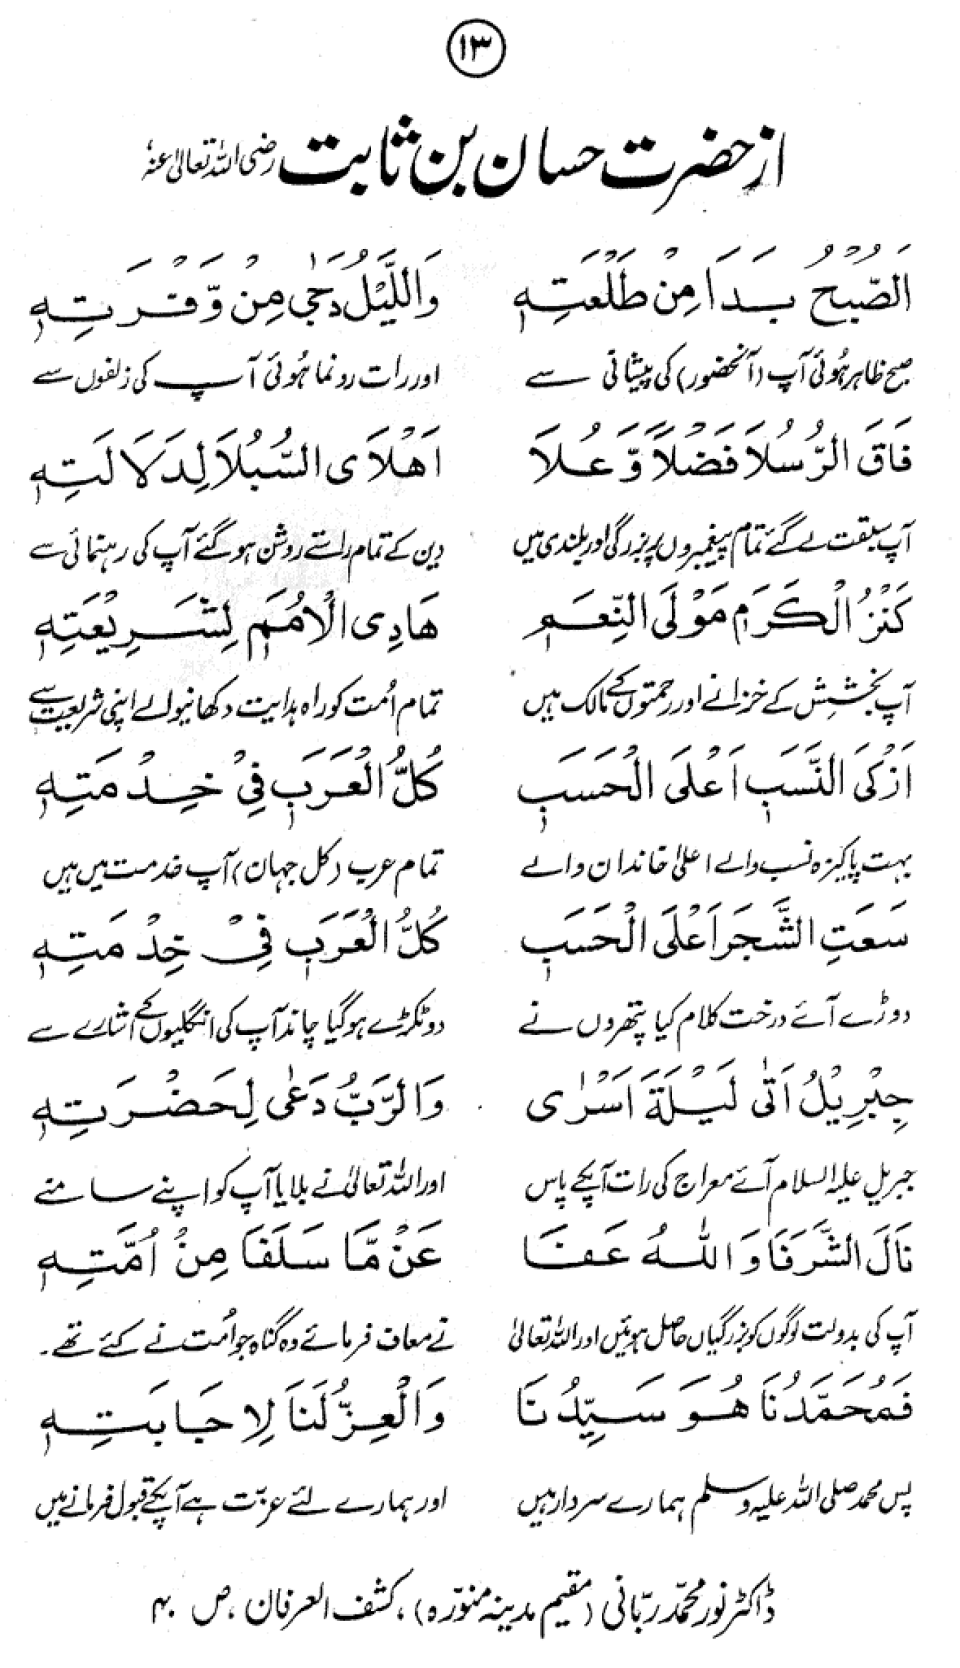 ۱۳
از حضرت حسان بن ثابت رضی اللہ تعالیٰ عنہٗ
اَلصُّبْحُ بَدَا مِنْ طَلْعَتِهٖ وَاللَّيْلُ دَجٰى مِنْ وَّفْرَتِهٖ
صبح ظاہر ہُوئی آپ (آنحضور) کی پیشانی سے اور رات رونما ہُوئی آپ کی زلفوں سے
فَاقَ الرُّسُلَا فَضْلًا وَّعُلَا اَهْلَاى السُّبُلَا لِدَلَالَتِهٖ
آپ سبقت لے گئے تمام پیغمبروں پر بزرگی اور بلندی میں دین کے تمام راستے روشن ہو گئے آپ کی رہنمائی سے
كَنْزُ الْكَرَمِ مَوْلَى النِّعَمِ هَادِى الْاُمَمِ لِشَرِيْعَتِهٖ
آپ بخشِش کے خزانے اور رحمتوں کے مالک ہیں تمام اُمت کو راہ ہدایت دکھانیوالے اپنی شریعت سے
اَزْكَى النَّسَبِ اَعْلَى الْحَسَبِ كُلُّ الْعَرَبِ فِيْ خِدْمَتِهٖ
بہت پاکیزہ نسب والے اعلیٰ خاندان والے تمام عرب (کل جہان) آپ خدمت میں ہیں
سَعَتِ الشَّجَرَ اَعْلَى الْحَسَبِ كُلُّ الْعَرَبِ فِيْ خِدْمَتِهٖ
دوڑے آئے درخت کلام کیا پتھروں نے دو ٹکڑے ہو گیا چاند آپ کی انگلیوں کے اشارے سے
جِبْرِيْلُ اَتٰى لَيْلَةَ اَسْرٰى وَالرَّبُّ دَعٰى لِحَضْرَتِهٖ
جبریل علیہ السلام آئے معراج کی رات آپکے پاس اور اللہ تعالیٰ نے بلایا آپ کو اپنے سامنے
نَالَ الشَّرَفَا وَاللهُ عَفَا عَنْ مَّا سَلَفَا مِنْ اُمَّتِهٖ
آپ کی بدولت لوگوں کو بزرگیاں حاصل ہوئیں اور اللہ تعالیٰ نے معاف فرمائے وہ گناہ جو اُمت نے کئے تھے۔
فَمُحَمَّدُنَا هُوَ سَيِّدُنَا وَالْعِزُّ لَنَا لِاِجَابَتِهٖ
پس محمد صلی اللہ علیہ وسلم ہمارے سردار ہیں اور ہمارے لئے عزّت ہے آپکے قبول فرمانے میں
ڈاکٹر نور محمّد ربّانی (مقیم مدینہ منوّرہ)، کشف العرفان، ص ۴۰